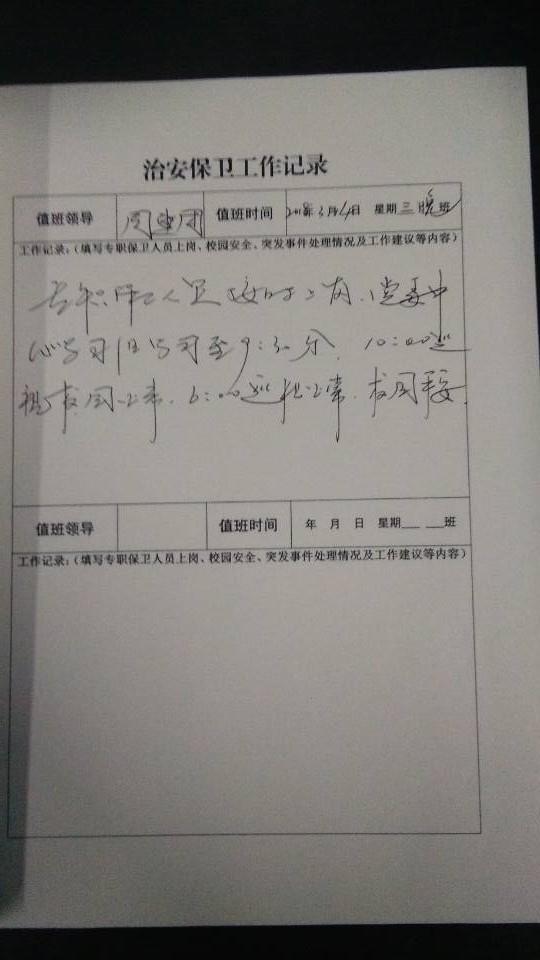 治安保卫工作记录
值班领导 周建国 值班时间 2018年3月14日 星期三 晚班
工作记录:(填写专职保卫人员上岗、校园安全、突发事件处理情况及工作建议等内容)
专职保卫人员按时上岗、党委中
心学习组学习至9:30分、10:00巡
视校园正常、6:00巡视正常、校园平安.
值班领导 值班时间 年 月 日 星期___ ___班
工作记录:(填写专职保卫人员上岗、校园安全、突发事件处理情况及工作建议等内容)